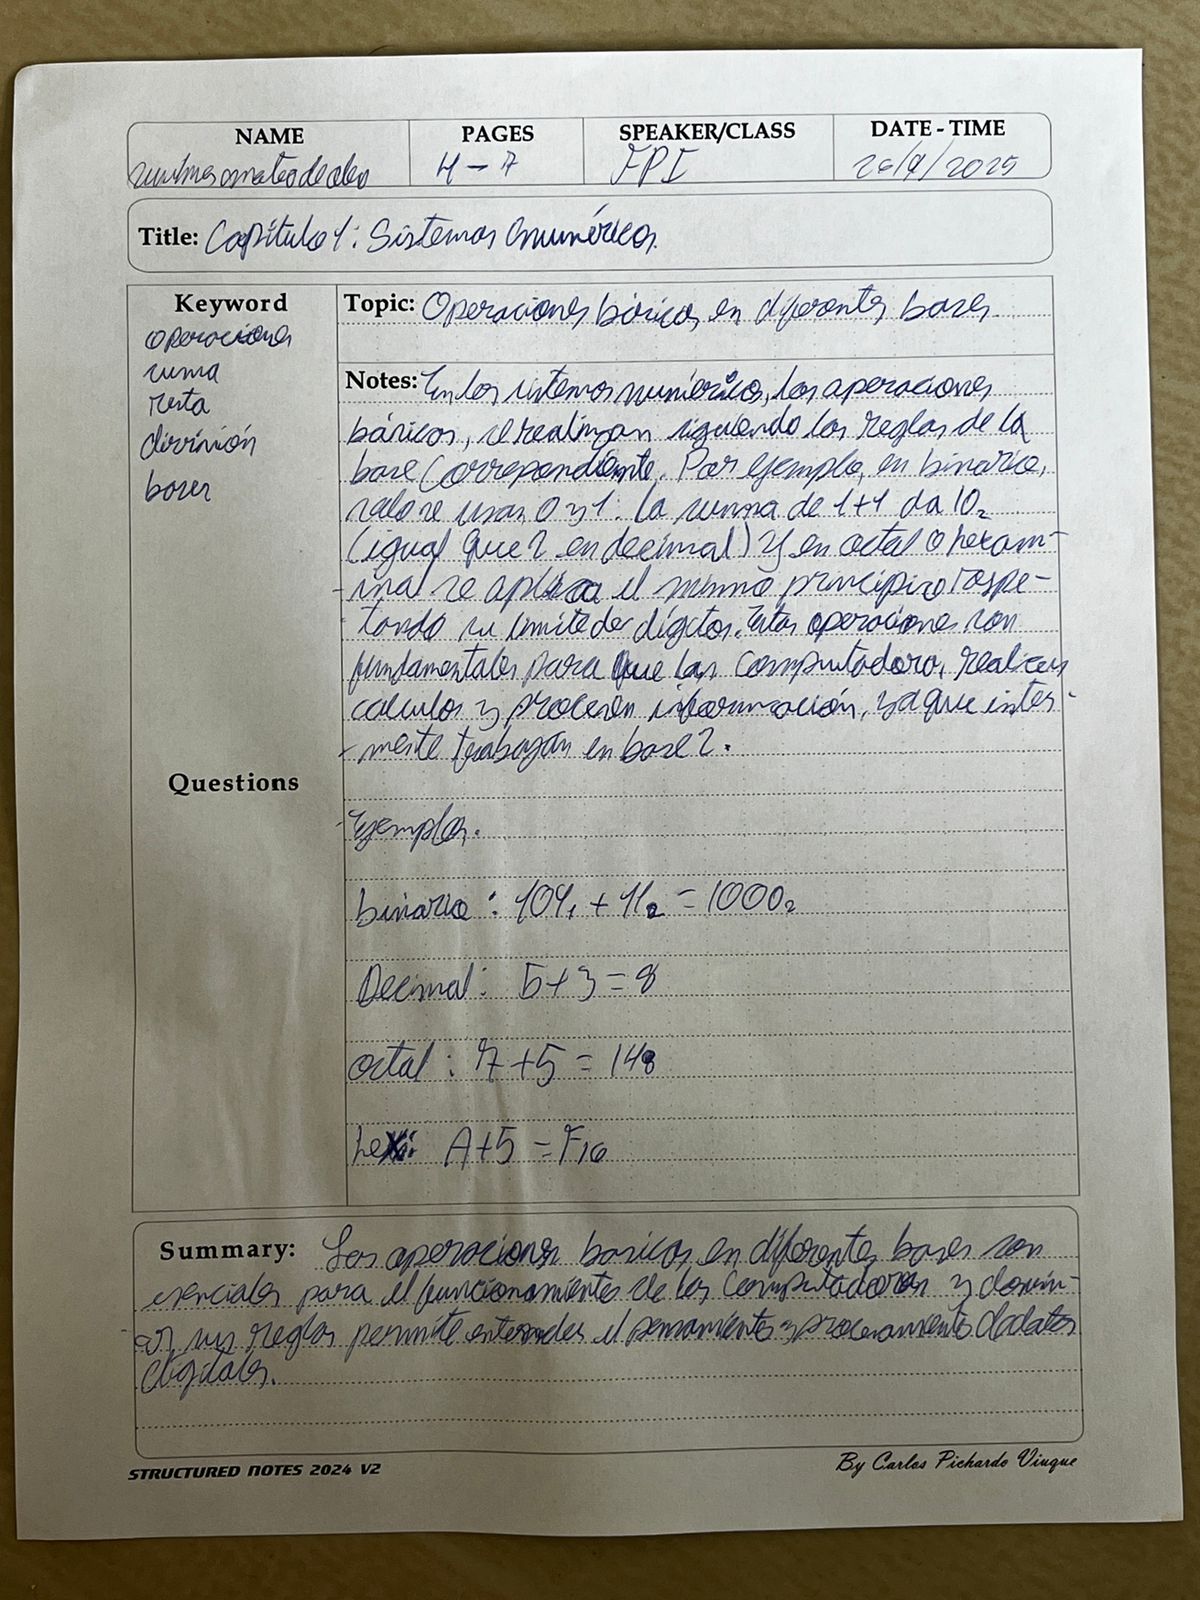 NAME PAGES SPEAKER/CLASS DATE - TIME
4-7 FPI 26/9/2025
Title: Capítulo 1: Sistemas numéricos
Keyword
operaciones
suma
resta
división
bases
Topic: Operaciones básicas en diferentes bases
Notes: En los sistemas numéricos, las operaciones
básicas, se realizan siguiendo las reglas de la
base correspondiente. Por ejemplo, en binario,
solo se usan 0 y 1. La suma de 1+1 da 10₂
(igual que 2 en decimal) Y en octal o hexam-
-inal se aplica el mismo principio respe-
-tando su limite de digitos. Estas operaciones son
fundamentales para que las computadora, realicen
calculos y procesen información, ya que inter-
-mente trabajan en base 2.
Questions
Ejemplos.
binario: 101₁ + 11₂ = 1000₂
Decimal: 5+3=8
octal: 7+5 = 14₈
hex: A+5 = F₁₆
Summary: Las operaciones basicas en diferentes bases son
esenciales para el funcionamientos de las computadoras y domin-
-ar sus reglas permite entender el pensamiento y procesamiento de datos
digitales.
STRUCTURED NOTES 2024 V2
By Carlos Pichardo Viuque